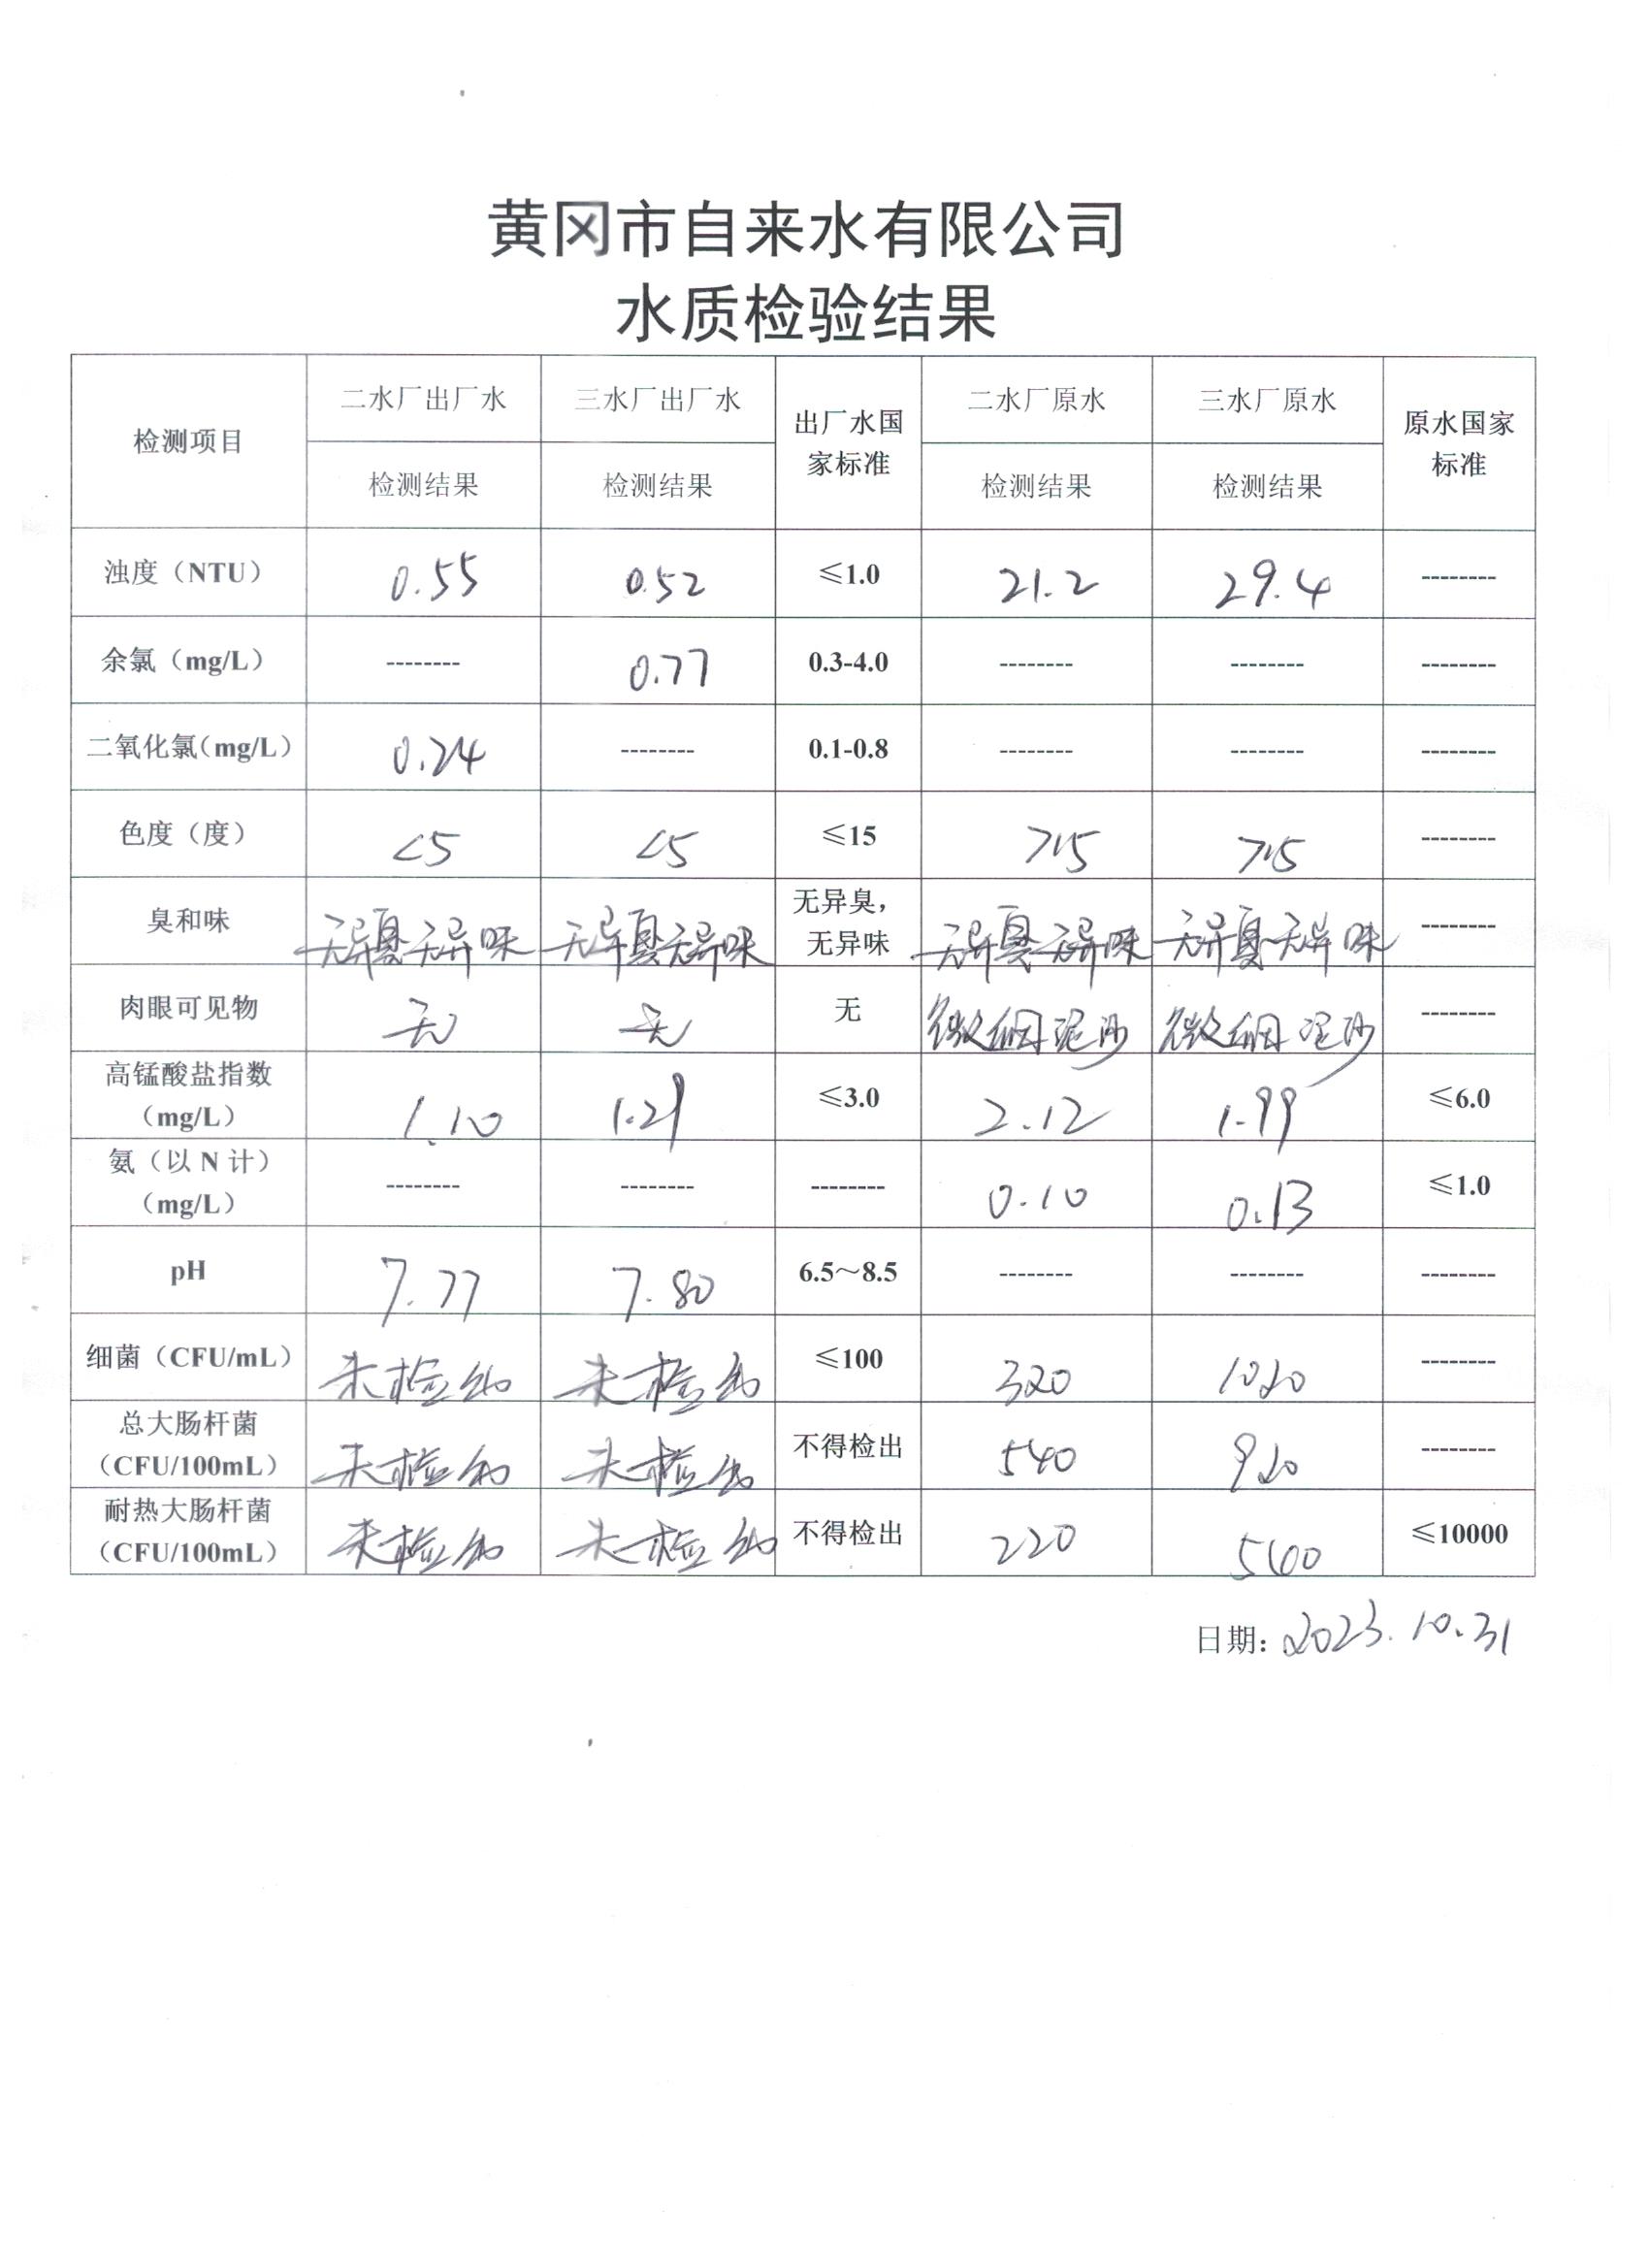 黄冈市自来水有限公司
水质检验结果
检测项目 二水厂出厂水 三水厂出厂水 出厂水国家标准 二水厂原水 三水厂原水 原水国家标准
检测结果 检测结果 检测结果 检测结果
浊度（NTU） 0.55 0.52 ≤1.0 21.2 29.4 --------
余氯（mg/L） -------- 0.77 0.3-4.0 -------- -------- --------
二氧化氯（mg/L） 0.24 -------- 0.1-0.8 -------- -------- --------
色度（度） <5 <5 ≤15 >15 >15 --------
臭和味 无异臭无异味 无异臭无异味 无异臭，无异味 无异臭无异味 无异臭无异味 --------
肉眼可见物 无 无 无 微细泥沙 微细泥沙 --------
高锰酸盐指数（mg/L） 1.10 1.29 ≤3.0 2.12 1.99 ≤6.0
氨（以 N 计）（mg/L） -------- -------- -------- 0.10 0.13 ≤1.0
pH 7.77 7.80 6.5～8.5 -------- -------- --------
细菌（CFU/mL） 未检出 未检出 ≤100 320 1020 --------
总大肠杆菌（CFU/100mL） 未检出 未检出 不得检出 540 920 --------
耐热大肠杆菌（CFU/100mL） 未检出 未检出 不得检出 220 540 ≤10000
日期: 2023.10.31